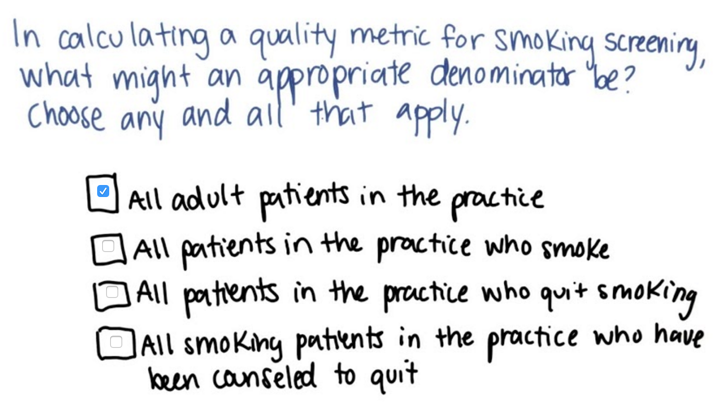 In calculating a quality metric for smoking screening,
what might an appropriate denominator be?
Choose any and all that apply.
All adult patients in the practice
All patients in the practice who smoke
All patients in the practice who quit smoking
All smoking patients in the practice who have
been counseled to quit